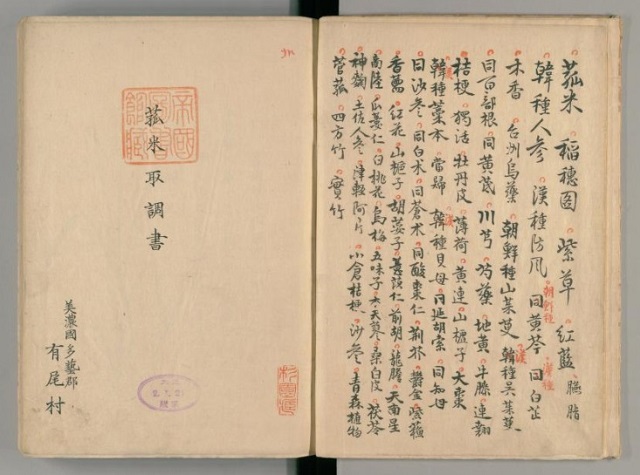 菰米 稲穂図 紫草 紅藍 臙脂
韓種人参 漢種防風 同黄芩 同白芷
木香 台州烏薬 朝鮮種山茱萸 韓種呉茱萸
同百部根 同黄芪 川芎 芍薬 地黄 牛膝 連翹
桔梗 独活 牡丹皮 薄荷 黄連 山樝子 大棗
韓種藁本 當歸 韓種貝母 同延胡索 同知母
同沙参 同白朮 同蒼朮 同酸棗仁 荊芥 欝金
香薷 紅花 山梔子 胡荽子 薏苡仁 前胡 龍膽 天南星
商陸 瓜蔞仁 白桃花 烏梅 五味子 桑白皮 茯苓
神麴 土佐人参 津軽阿片 小倉桔梗 沙参 青森植物
菅菰 四方竹 實竹
帝國圖書館藏
菰米取調書
美濃國多藝郡
有尾村